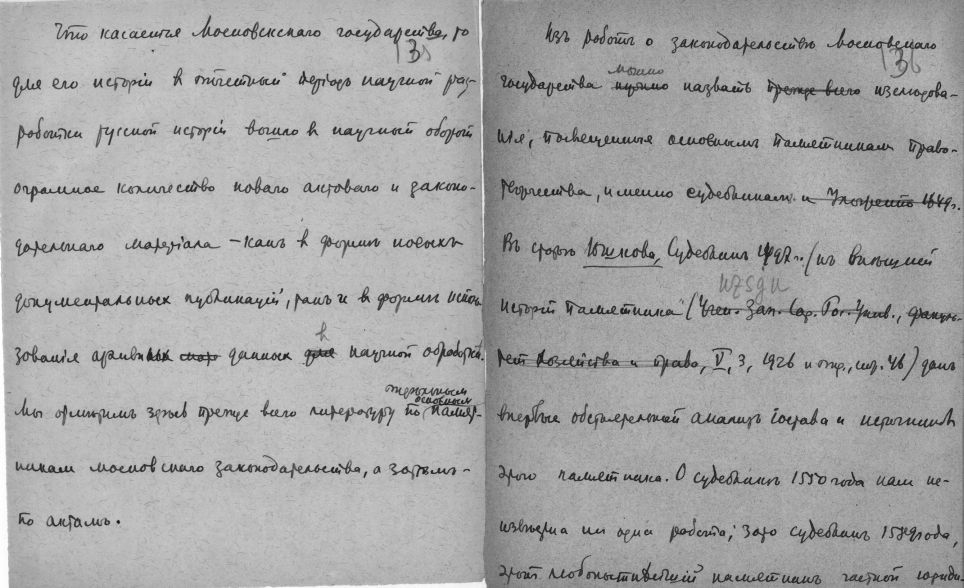 Что касается Московскаго государства, то
для его исторіи в отчетный періодъ научной раз-
работки русской исторіи вошло в научный оборот
огромное количество новаго актоваго и законо-
дательнаго матеріала – какъ в формѣ новыхъ
документальных публикацій, такъ и в формѣ исполь-
зованія архивных данных для в научной обработкѣ.
Мы отмѣтимъ здѣсь прежде всего литературу по отдѣльным основным памят-
никам московскаго законодательства, а затѣмъ –
по актамъ.
13а
Изъ работъ о законодательствѣ Московскаго
13б
государства нужно можно назвать прежде всего изслѣдова-
нія, посвященныя основнымъ памятникам право-
творчества, именно судебникам и Уложенію 1649 г.
Въ статьѣ Юшкова, Судебникъ 1497 г. (къ внѣшней
исторіи памятника) (Учен. Зап. Сар. Гос. Унив., факуль-
тет хозяйства и права, V, 3, 1926 и отд., стр. 46) данъ
впервые обстоятельный анализ состава и источников
этого памятника. О судебникѣ 1550 года нам не-
извѣстна ни одна работа; зато судебникъ 1589 года,
этот любопытнѣйшій памятникъ частной юриди-